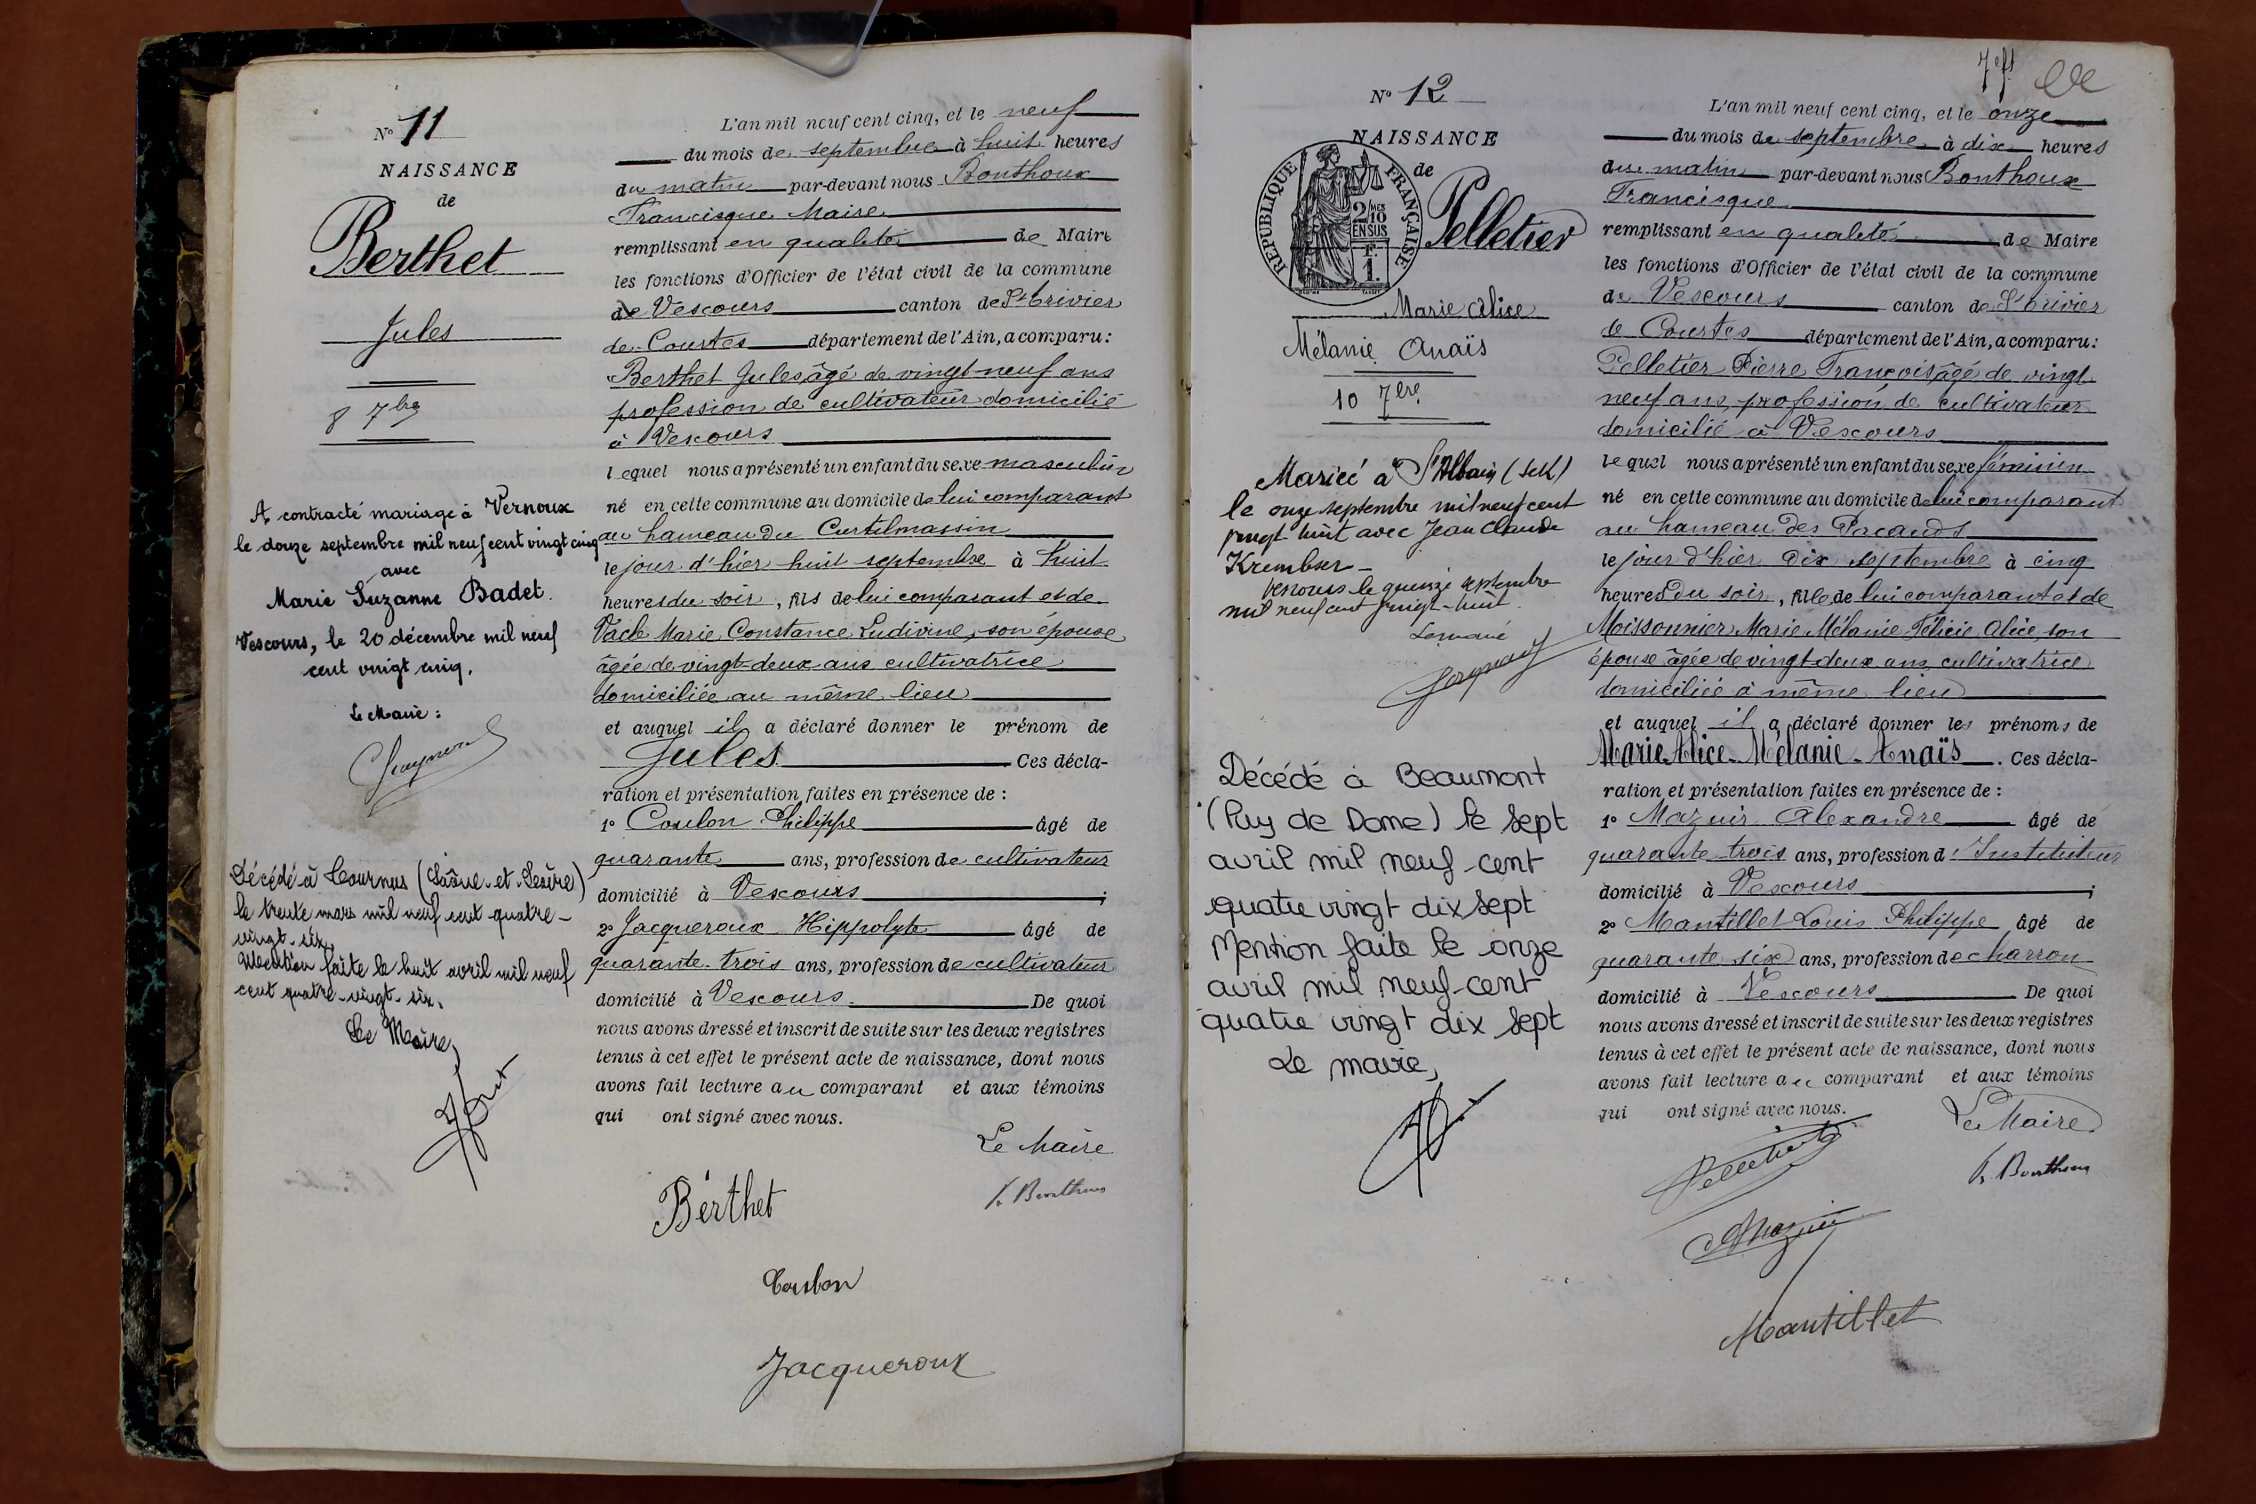 N° 11
NAISSANCE
de
Berthet
Jules
8 7bre
A contracté mariage à Vernoux
le douze septembre mil neuf cent vingt cinq
avec
Marie Suzanne Badet.
Vescours, le 20 décembre mil neuf
cent vingt cinq.
Le Maire :
Décédé à Tournus (Saône-et-Loire)
le trente mars mil neuf cent quatre-
vingt-six.
Mention faite le huit avril mil neuf
cent quatre-vingt-six.
Le Maire,
L'an mil neuf cent cinq, et le neuf
du mois de septembre à huit heures
du matin par-devant nous Bonthoux
Francisque Maire
remplissant en qualité de Maire
les fonctions d'Officier de l'état civil de la commune
de Vescours canton de St trivier
de Courtes département de l'Ain, a comparu :
Berthet Jules, âgé de vingt-neuf ans
profession de cultivateur domicilié
à Vescours
lequel nous a présenté un enfant du sexe masculin
né en cette commune au domicile de lui comparant
au hameau du Curtilmassin
le jour d'hier huit septembre à huit
heures du soir, fils de lui comparant et de
Vach Marie Constance Ludivine, son épouse
âgée de vingt-deux ans cultivatrice
domiciliée au même lieu
et auquel il a déclaré donner le prénom de
Jules Ces décla-
ration et présentation faites en présence de :
1° Coulon Philippe âgé de
quarante ans, profession de cultivateur
domicilié à Vescours ;
2° Jacqueroux Hippolyte âgé de
quarante-trois ans, profession de cultivateur
domicilié à Vescours. De quoi
nous avons dressé et inscrit de suite sur les deux registres
tenus à cet effet le présent acte de naissance, dont nous
avons fait lecture au comparant et aux témoins
qui ont signé avec nous.
Le Maire
Berthet
F. Bonthoux
Coulon
Jacqueroux
N° 12
NAISSANCE
de
RÉPUBLIQUE FRANÇAISE
2/10 EN SUS
1 F.
Pelletier
Marie Alice
Mélanie Anaïs
10 7bre
Mariée à St Albain (S&L)
le onze septembre mil neuf cent
vingt huit avec Jean Claude
Krembser -
Vescours le quinze septembre
mil neuf cent vingt-huit.
Le maire
Décédé à Beaumont
(Puy de Dome) le sept
avril mil neuf-cent
quatre vingt dix sept
Mention faite le onze
avril mil neuf-cent
quatre vingt dix sept
Le maire,
L'an mil neuf cent cinq, et le onze
du mois de septembre à dix heures
du matin par-devant nous Bonthoux
Francisque
remplissant en qualité de Maire
les fonctions d'Officier de l'état civil de la commune
de Vescours canton de St trivier
de Courtes département de l'Ain, a comparu :
Pelletier Pierre François, âgé de vingt
neuf ans, profession de cultivateur
domicilié à Vescours
lequel nous a présenté un enfant du sexe féminin
né en cette commune au domicile de lui comparant
au hameau des Pacauds
le jour d'hier dix septembre à cinq
heures du soir, fille de lui comparant et de
Moissonnier Marie Mélanie Félicie Alice, son
épouse âgée de vingt-deux ans, cultivatrice
domiciliée à même lieu
et auquel il a déclaré donner les prénoms de
Marie-Alice-Mélanie-Anaïs. Ces décla-
ration et présentation faites en présence de :
1° Mazuir Alexandre âgé de
quarante-trois ans, profession d'Instituteur
domicilié à Vescours ;
2° Mantillet Louis Philippe âgé de
quarante-six ans, profession de charron
domicilié à Vescours De quoi
nous avons dressé et inscrit de suite sur les deux registres
tenus à cet effet le présent acte de naissance, dont nous
avons fait lecture au comparant et aux témoins
qui ont signé avec nous.
Le Maire
Pelletier
F. Bonthoux
AMazuir
Mantillet